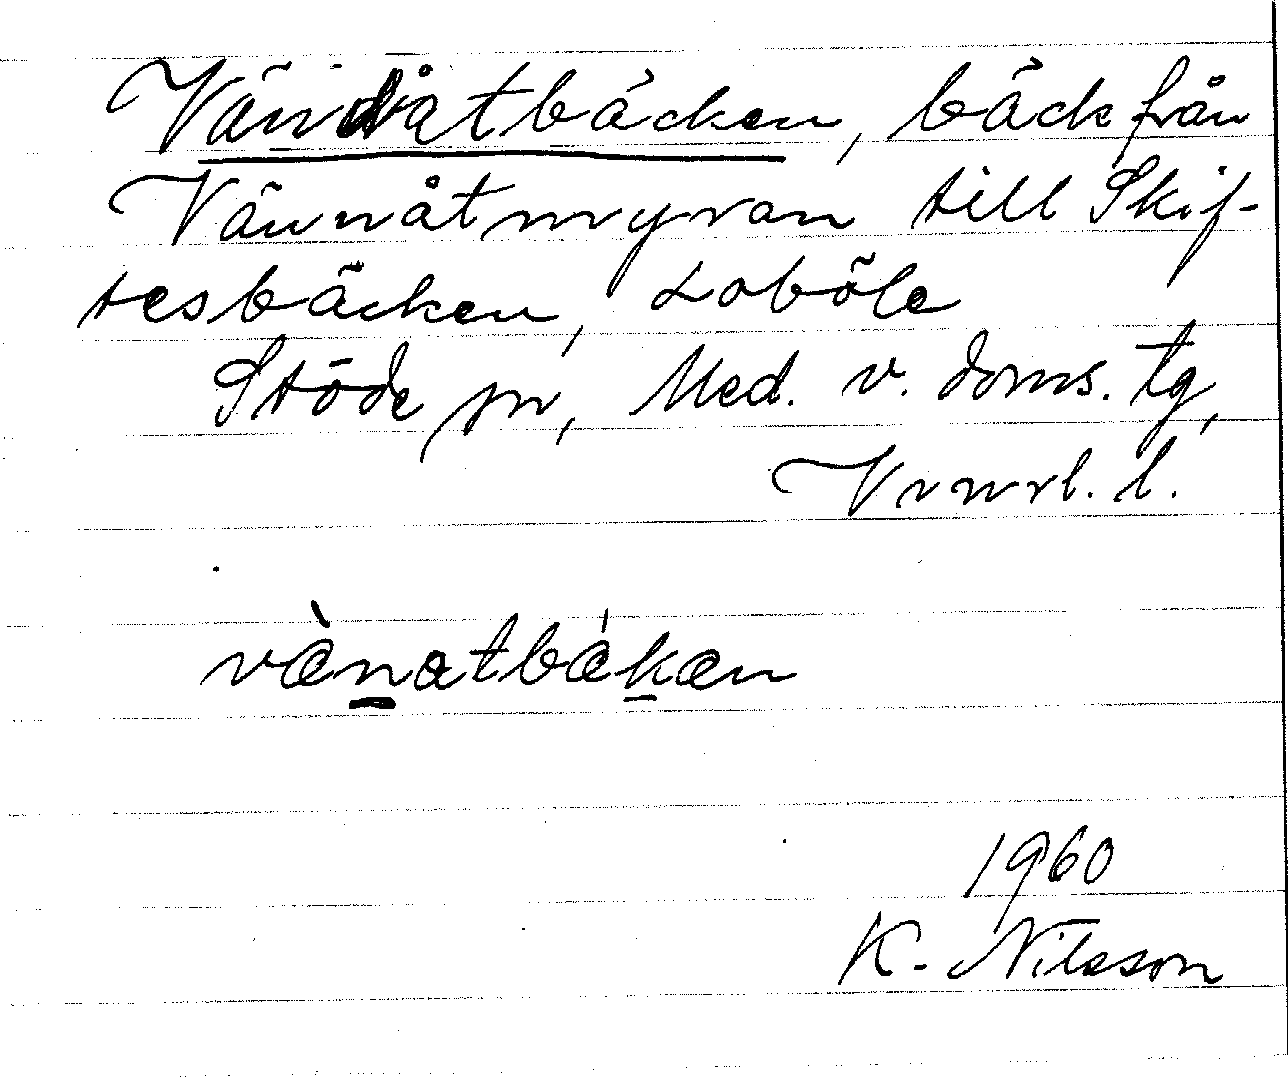 Vändåtbäcken, bäck från
Vännåtmyran till Skif-
tesbäcken, Loböle
Stöde sn, Med. v. doms. tg,
Vnrl. l.
vænatbækæn
1960
K. Nilsson